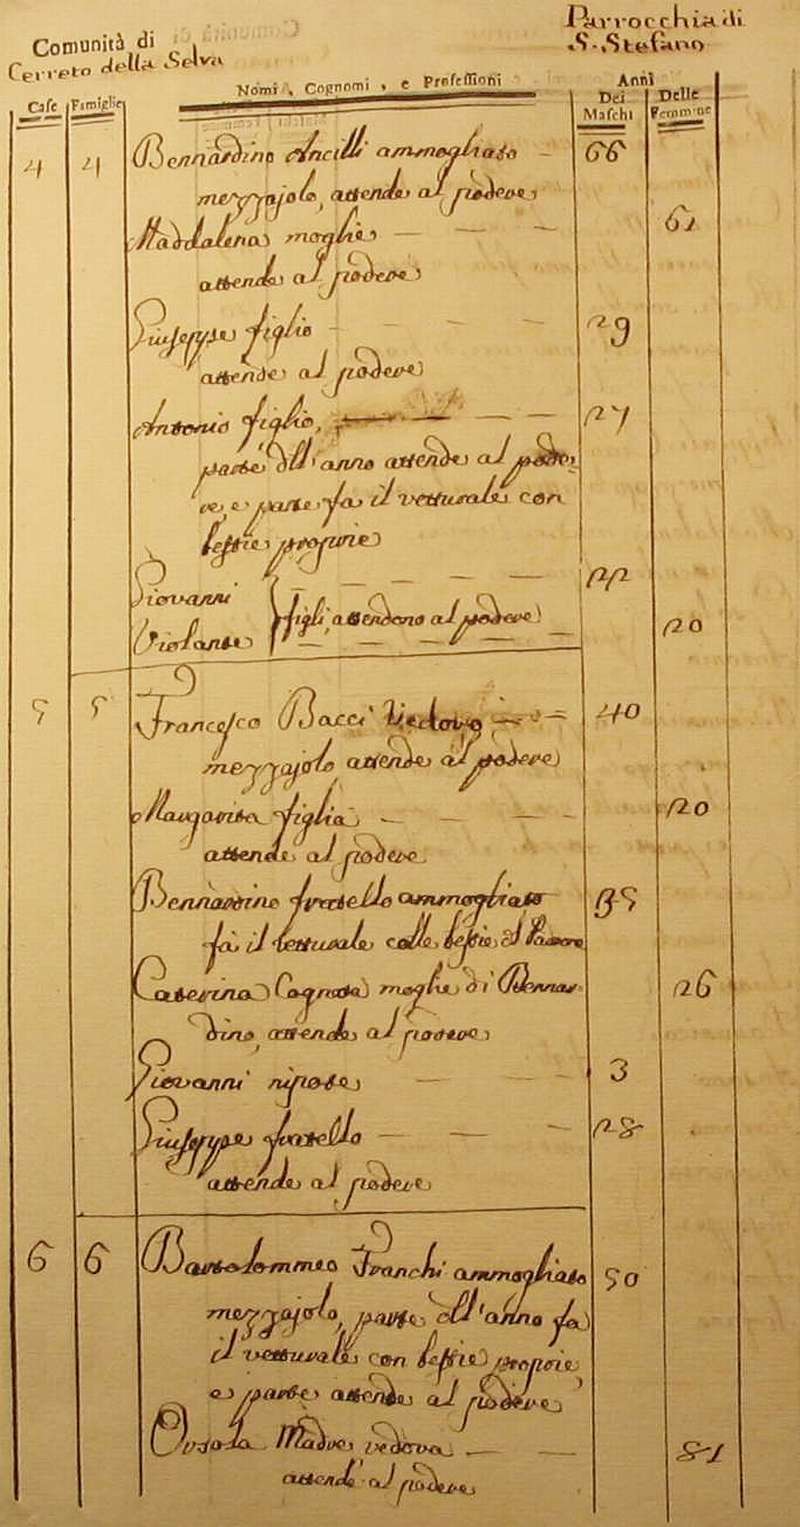 Comunità di
Cerreto della Selva
Parrocchia di
S. Stefano
Case Famiglie Nomi, Cognomi, e Professioni Anni
Dei Maschi Delle Femmine
4 4 Bennardino Ancilli ammogliato 66
mezzajolo, attende al podere
Maddalena moglie 61
attende al podere
Giuseppe figlio 29
attende al podere
Antonio figlio, 24
parte dell'anno attende al pode
re, e parte fa il vetturale con
bestie proprie
Giovanni 22
figli, attendono al podere
Violante 20
5 5 Francesco Bacci Vedovo 40
mezzajolo attende al podere
Margarita figlia 20
attende al podere
Bennardino fratello ammogliato 35
fà il vetturale colle bestie del Padrone
Caterina Cognata moglie di Bennar
26
dino, attende al podere
Giovanni nipote 3
Giuseppe fratello 28
attende al podere
6 6 Bartolommeo Franchi ammogliato 50
mezzajolo, parte dell'anno fa
il vetturale con bestie proprie
e parte attende al podere
Orsola Madre vedova 81
attende al podere